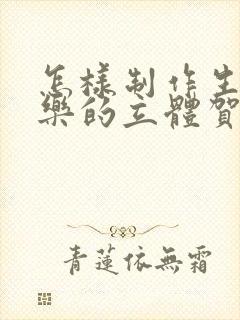 怎樣制作生
樂的立體賀
青蓮依無霜